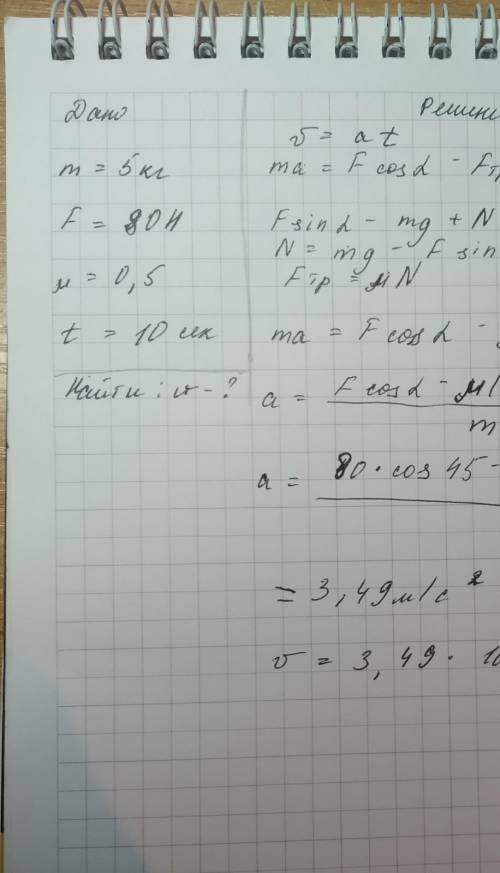 Дано
m = 5 кг
F = 80 Н
μ = 0,5
t = 10 сек
Найти : v - ?
Решени
v = a t
ma = F cos α - Fтр
F sin α - mg + N
N = mg - F sin
Fтр = μN
ma = F cos α -
a = F cos α - μ(
m
a = 80 · cos 45 -
= 3,49 м/с²
v = 3,49 · 10